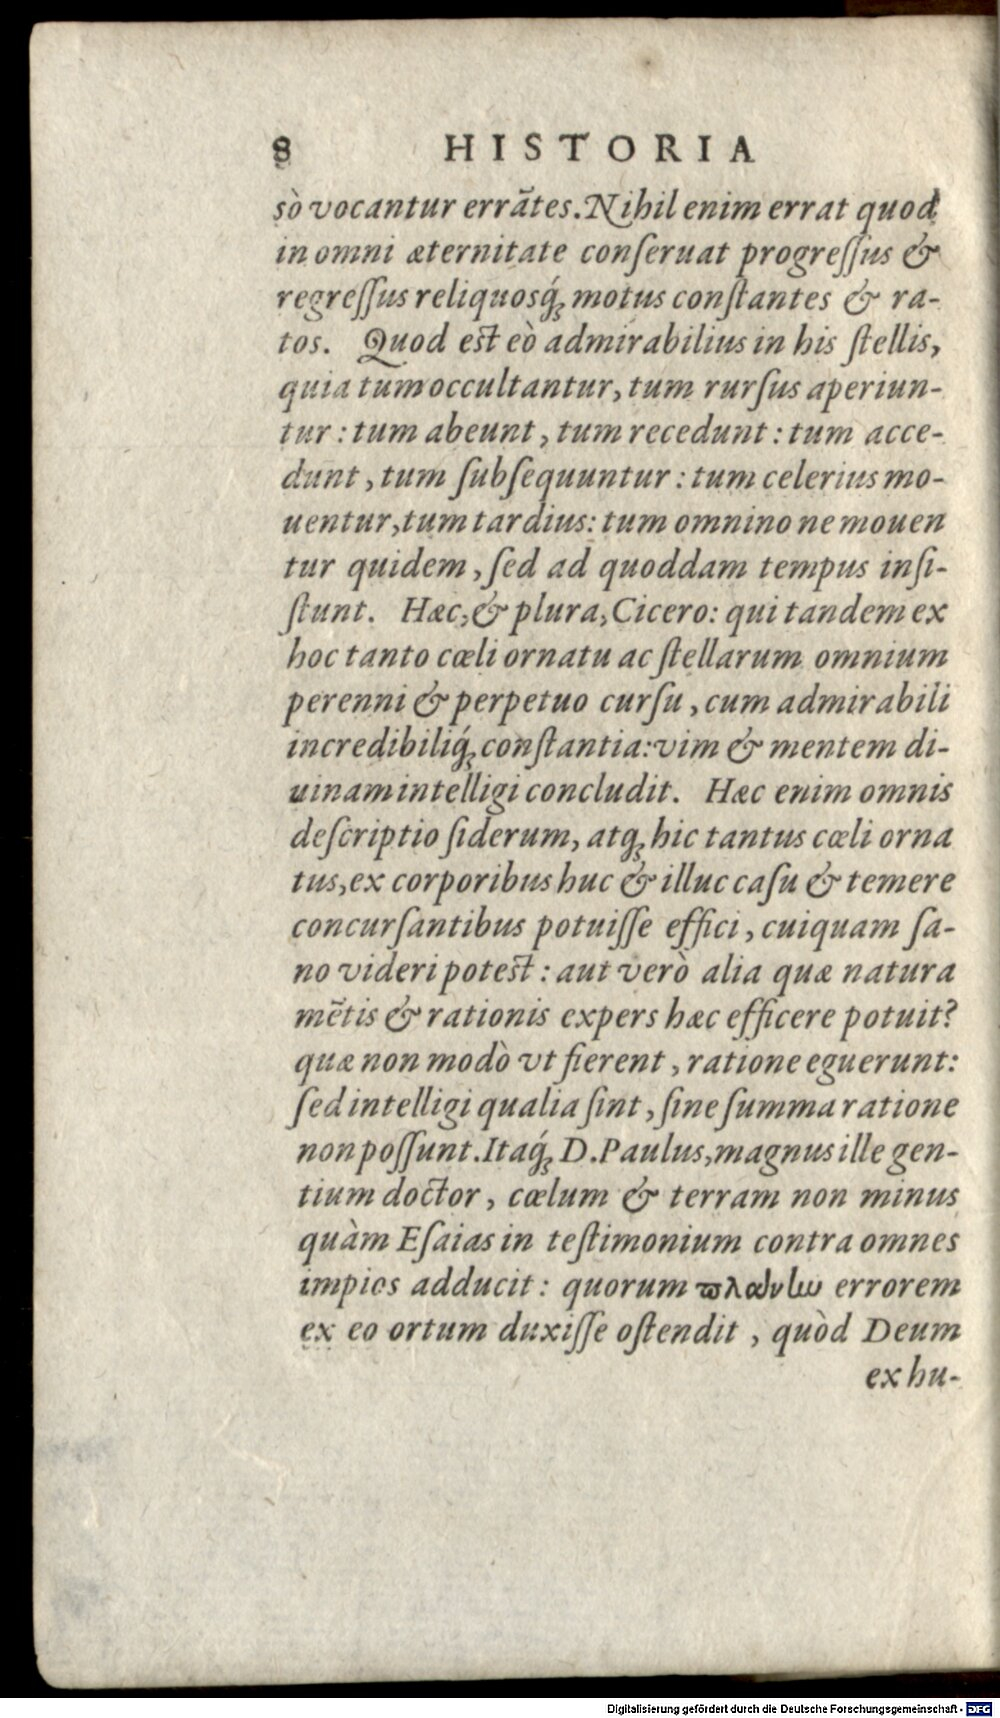 8 HISTORIA
sò vocantur errãtes. Nihil enim errat quod
in omni æternitate conſeruat progreſſus &
regreſſus reliquosq́; motus conſtantes & ra-
tos. Quod est eò admirabilius in his ſtellis,
quia tum occultantur, tum rurſus aperiun-
tur : tum abeunt, tum recedunt : tum acce-
dunt, tum ſubſequuntur : tum celerius mo-
uentur, tum tardius: tum omnino ne mouen
tur quidem, ſed ad quoddam tempus inſi-
ſtunt. Hæc, & plura, Cicero: qui tandem ex
hoc tanto cœli ornatu ac ſtellarum omnium
perenni & perpetuo curſu, cum admirabili
incredibiliq́; conſtantia: vim & mentem di-
uinam intelligi concludit. Hæc enim omnis
deſcriptio ſiderum, atq; hic tantus cœli orna
tus, ex corporibus huc & illuc caſu & temere
concurſantibus potuiſſe effici, cuiquam ſa-
no videri potest : aut verò alia quæ natura
mẽtis & rationis expers hæc efficere potuit?
quæ non modò vt fierent, ratione eguerunt:
ſed intelligi qualia ſint, ſine ſumma ratione
non poſſunt. Itaq́; D. Paulus, magnus ille gen-
tium doctor, cœlum & terram non minus
quàm Eſaias in teſtimonium contra omnes
impios adducit : quorum errorem
ex eo ortum duxiſſe oſtendit, quòd Deum
ex hu-
Digitalisierung gefördert durch die Deutsche Forschungsgemeinschaft - DFG